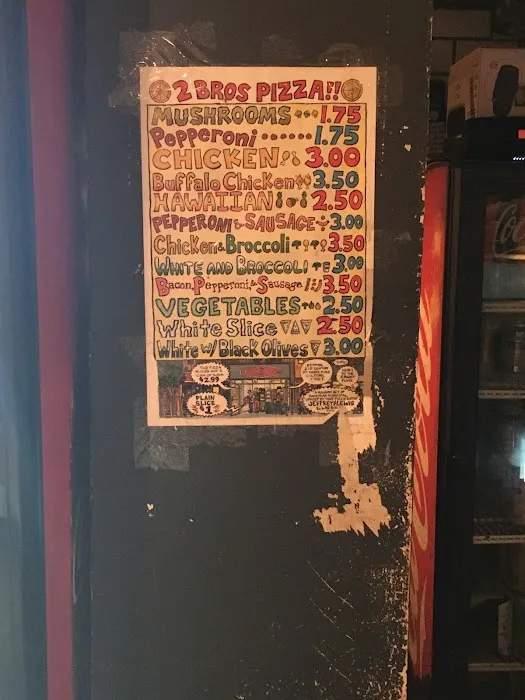 2 BROS PIZZA!!
MUSHROOMS 1.75
Pepperoni 1.75
CHICKEN 3.00
Buffalo Chicken 3.50
HAWAIIAN 2.50
PEPPERONI & SAUSAGE 3.00
Chicken & Broccoli 3.50
WHITE AND BROCCOLI 3.00
Bacon, Pepperoni, & Sausage 3.50
VEGETABLES 2.50
White Slice 2.50
White w/ Black Olives 3.00
$2.99
PLAIN SLICE $1
JEFFREY LEWIS
Coca-Cola